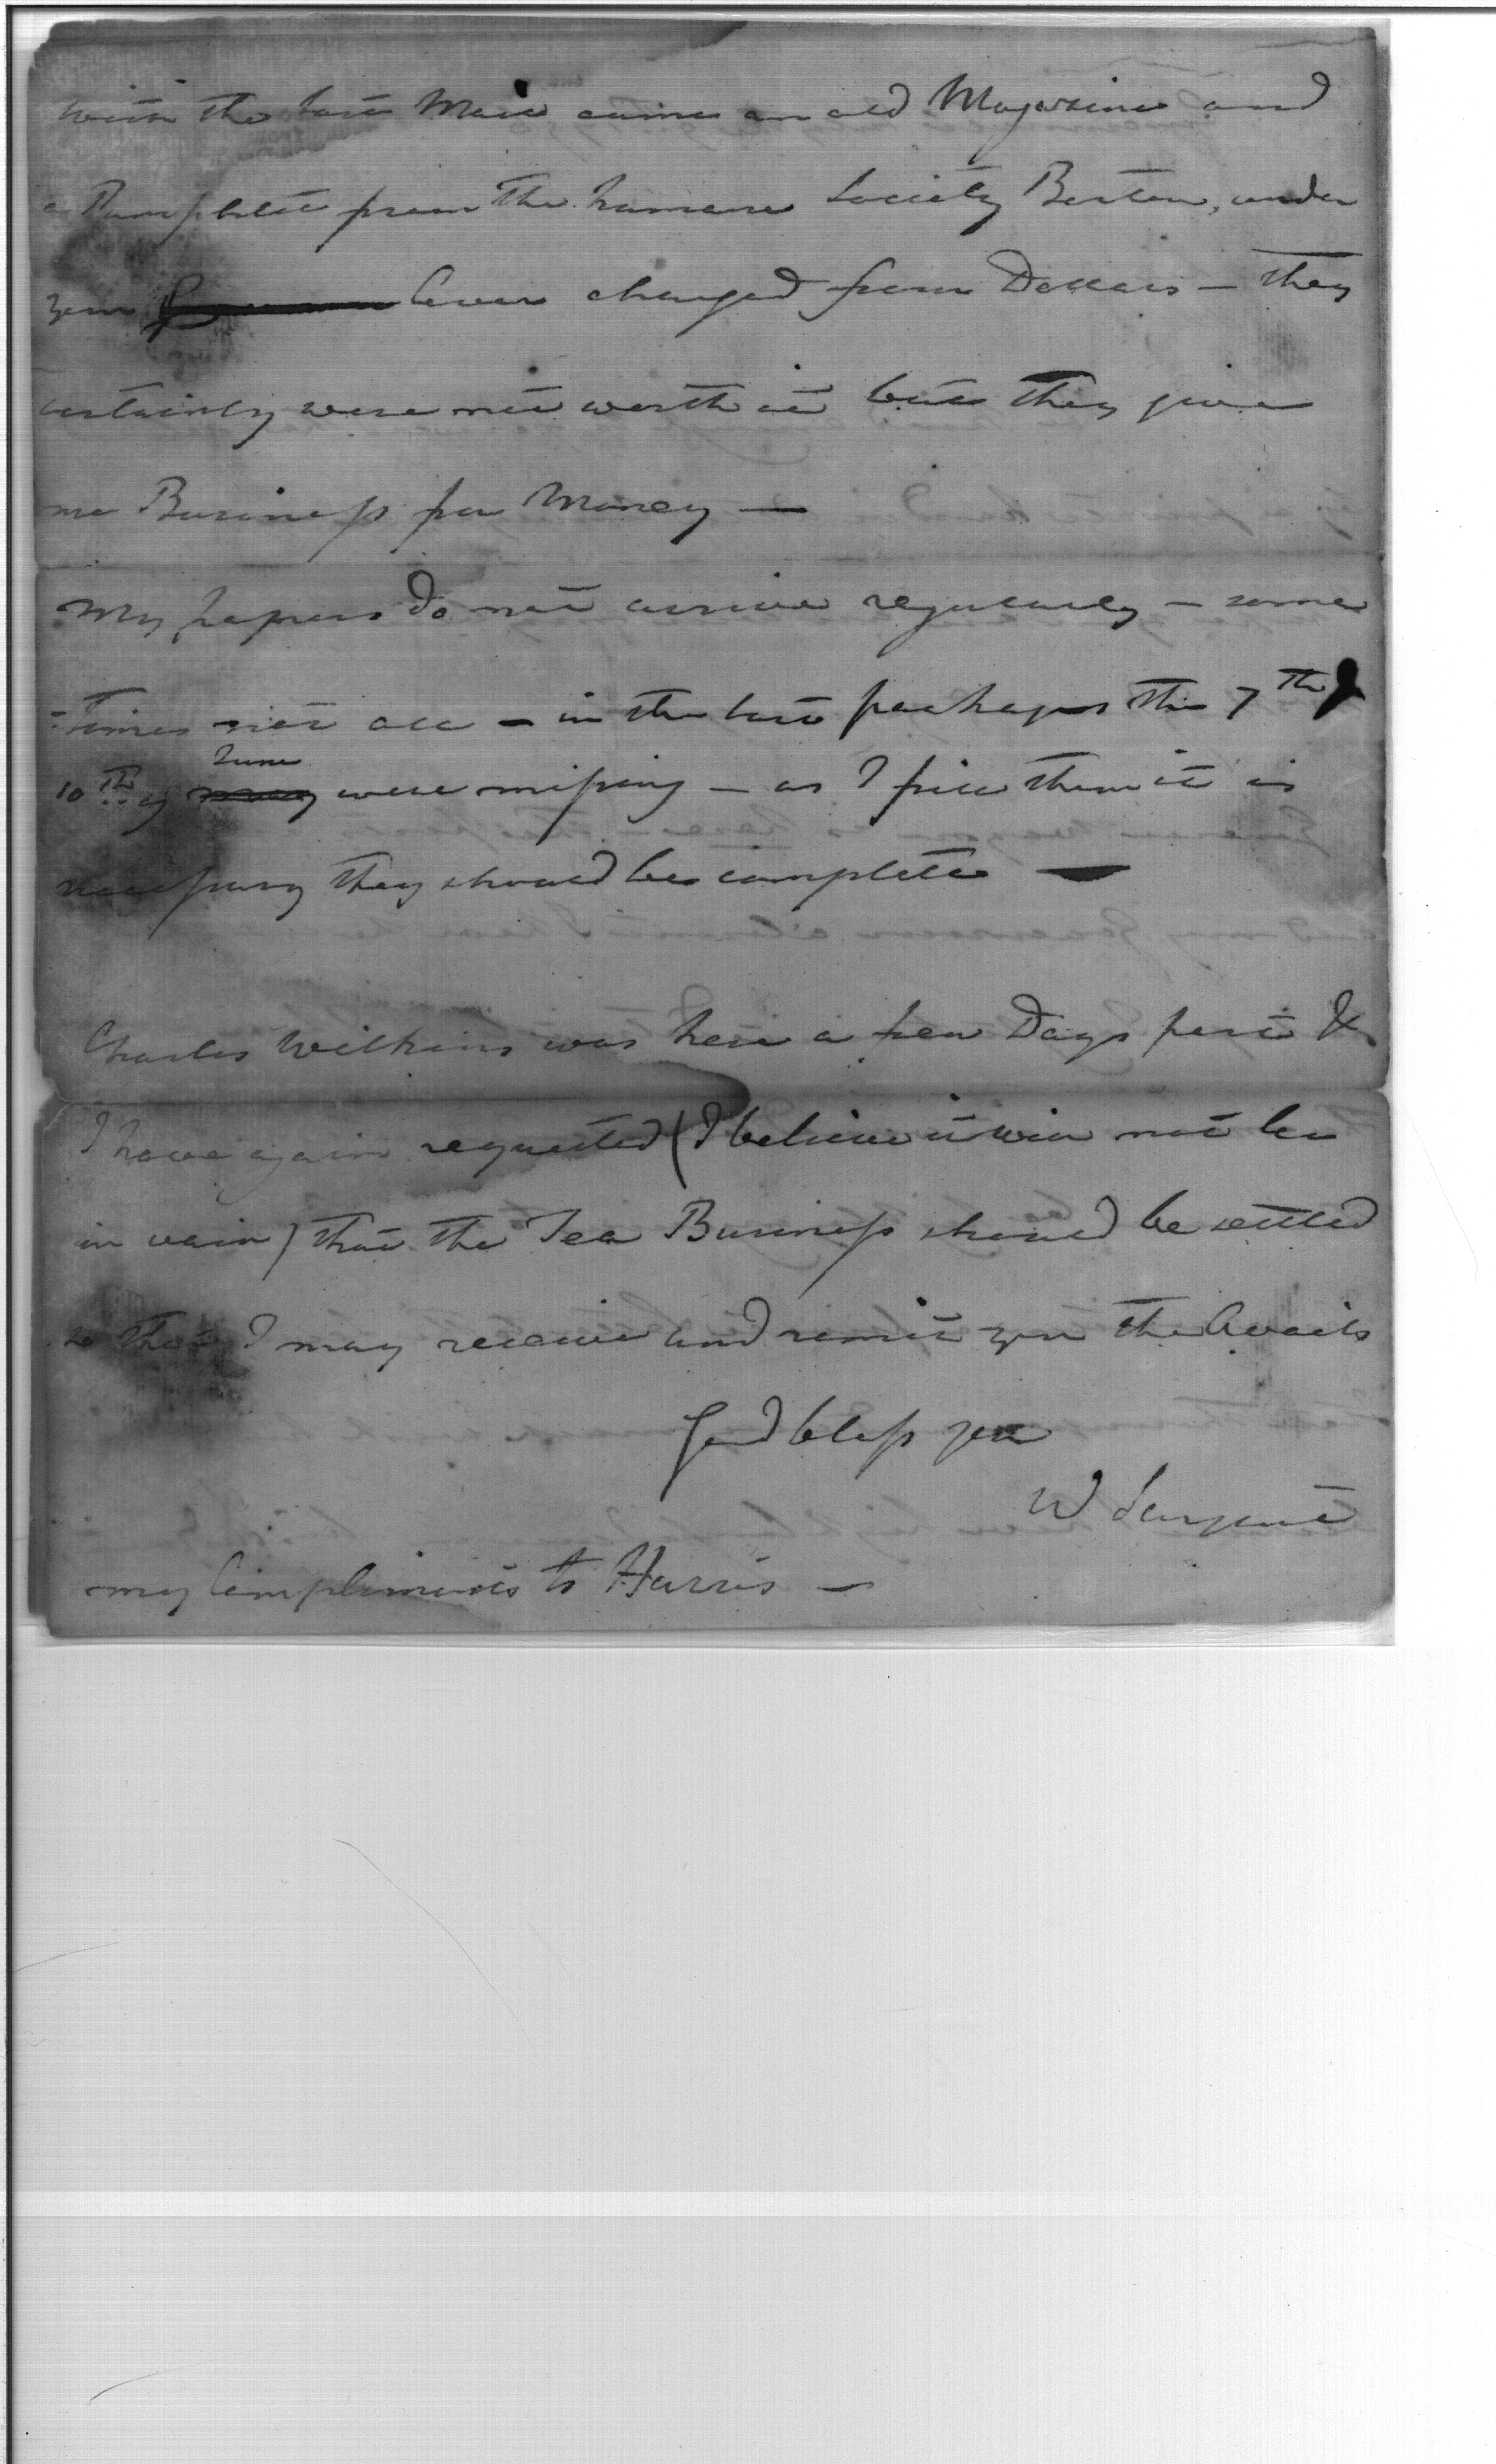 with the last Mail came an old Magazine and
a Pamphlett from the humane Society Boston, under
your Cover charged four Dollars — they
certainly were not worth it but they give
me Business for Money —
My papers do not arrive regularly — some
=Times not all — in the last packages the 7th &
10th of June were missing — as I file them it is
necessary they should be complete —
Charles Wilkins was here a few Days past &
I have again requested (I believe it will not be
in vain) that the Tea Business should be settled
so that I may receive and remit you the Avails
God bless you
W Sargent
my Compliments to Harris —